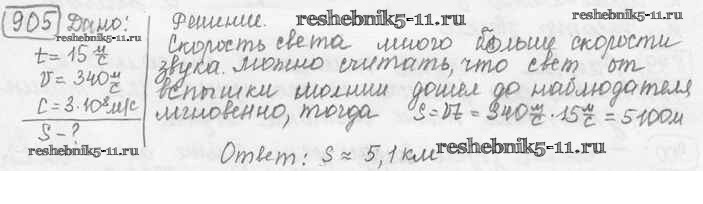 905 Дано: Решение. reshebnik5-11.ru
reshebnik5-11.ru
t = 15 м/с Скорость света много больше скорости
v = 340 м/с звука. Можно считать, что свет от
c = 3·10⁸ м/с вспышки молнии дошел до наблюдателя
S - ? мгновенно, тогда S = vt = 340 м/с · 15 м/с = 5100 м
reshebnik5-11.ru
Ответ: S ≈ 5,1 км reshebnik5-11.ru